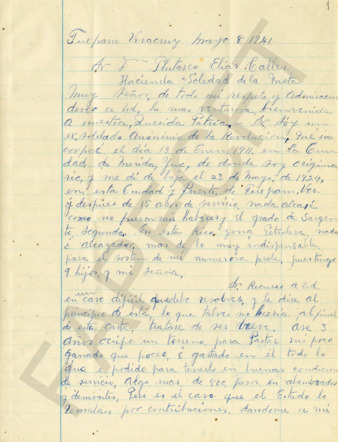 1
Tuxpam Veracruz mayo 8 1941
Sr. Plutarco Elias Calles
Hacienda Soledad de la Mota
Muy Señor, de todo mi respeto y Admiracion
deseo a Ud, la mas venturosa bienvenida
a nuestra Querida Patria, Sr. Soy un
ex, soldado Anonimo de la Revolucion, que in
corpoé el dia 13 de Enero 1911, en La Ciu
dad de Merida Yuc, de donde soy origina
rio, y me di de baja el 23 de Mayo, de 1924,
en, esta Ciudad y Puerto de Tuxpam, Ver.
y despues de 15 años de servicio, nada alcasé
como no fueron mis haberes y el grado de Sargen
to Segundo. En esta Rica zona Petrolera, nada
é alcanzado, mas de lo muy indispensable
para el sosten de mi numerosa prole, pues tengo
9 hijos, y mi señora.
Sr, Recurro a Ud.
en un caso dificil, que debo resolver, y le diré al
principio de esta, lo que talves no leeria al final
de esta carta, tratare de ser breve. Ase 3
Años ocupo un terreno, para Pastar mi poco
Ganado que poseo, é gastado en él todo lo
que é podido para tenerlo en buenas condicion
de servicio, algo mas de 800 pesos en alambrados
y desmontes, Pero es el caso que el Estado lo
Remata, por contribuciones, dandome a mi